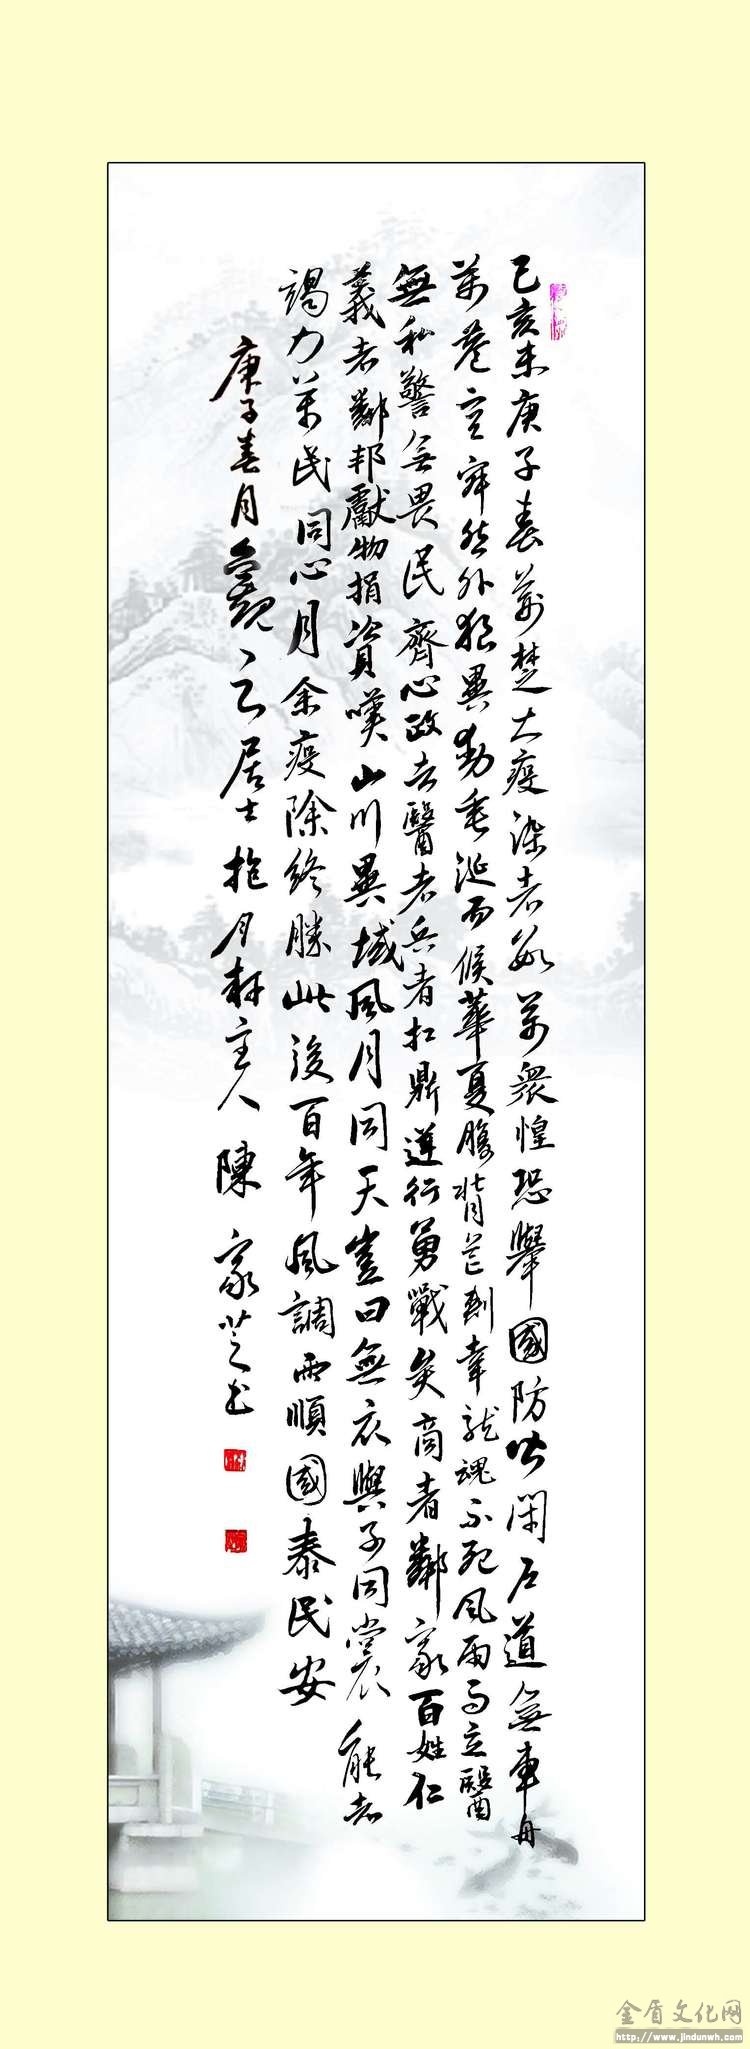 己亥末庚子春荊楚大疫染者數萬衆惶恐舉國防皆閉户道無車舟
萬巷空寂然外狼異動垂涎而候華夏腹背芒刺幸龍魂不死風雨而立醫
無私警無畏民齊心政者醫者兵者扛鼎逆行勇戰矣商者鄰家百姓仁
義者鄰邦獻物捐資嘆山川異域風月同天豈曰無衣與子同裳能者
竭力萬民同心月余疫除終勝此後百年風調雨順國泰民安
庚子春月 云居士抱月軒主人陳家芝书
金盾文化网
http://www.jindunwh.com